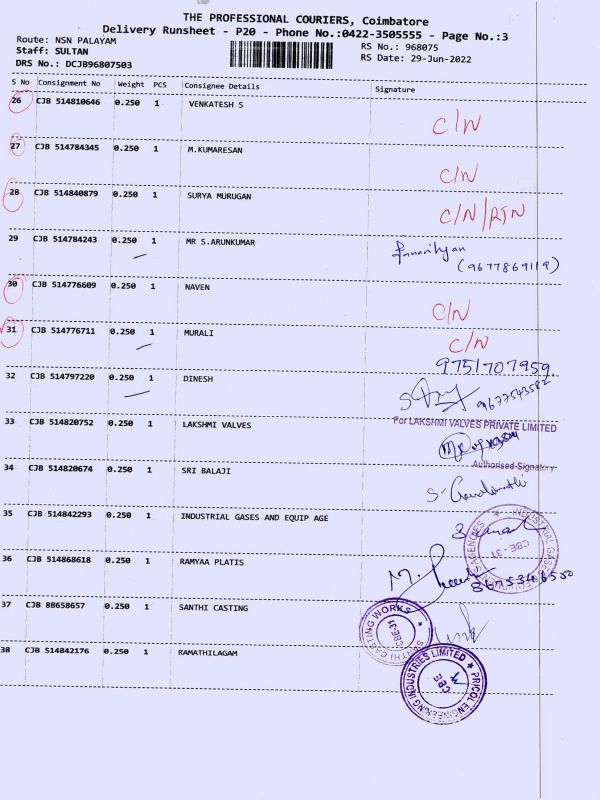 THE PROFESSIONAL COURIERS, Coimbatore
Delivery Runsheet - P20 - Phone No.:0422-3505555 - Page No.:3
Route: NSN PALAYAM RS No.: 968075
Staff: SULTAN RS Date: 29-Jun-2022
DRS No.: DCJB96807503
S No Consignment No Weight PCS Consignee Details Signature
26 CJB 514810646 0.250 1 VENKATESH S C/N
27 CJB 514784345 0.250 1 M.KUMARESAN C/N
28 CJB 514840879 0.250 1 SURYA MURUGAN C/N/RTN
29 CJB 514784243 0.250 1 MR S.ARUNKUMAR
(9677869119)
30 CJB 514776609 0.250 1 NAVEN C/N
31 CJB 514776711 0.250 1 MURALI C/N
9751707959
32 CJB 514797220 0.250 1 DINESH
9677543582
33 CJB 514820752 0.250 1 LAKSHMI VALVES For LAKSHMI VALVES PRIVATE LIMITED
Authorised Signatory
34 CJB 514820674 0.250 1 SRI BALAJI
35 CJB 514842293 0.250 1 INDUSTRIAL GASES AND EQUIP AGE
CBE - 31
36 CJB 514868618 0.250 1 RAMYAA PLATIS
37 CJB 88658657 0.250 1 SANTHI CASTING
SANTHI CASTING WORKS CBE-31
38 CJB 514842176 0.250 1 RAMATHILAGAM
PRICOL ENGINEERING INDUSTRIES LIMITED CBE